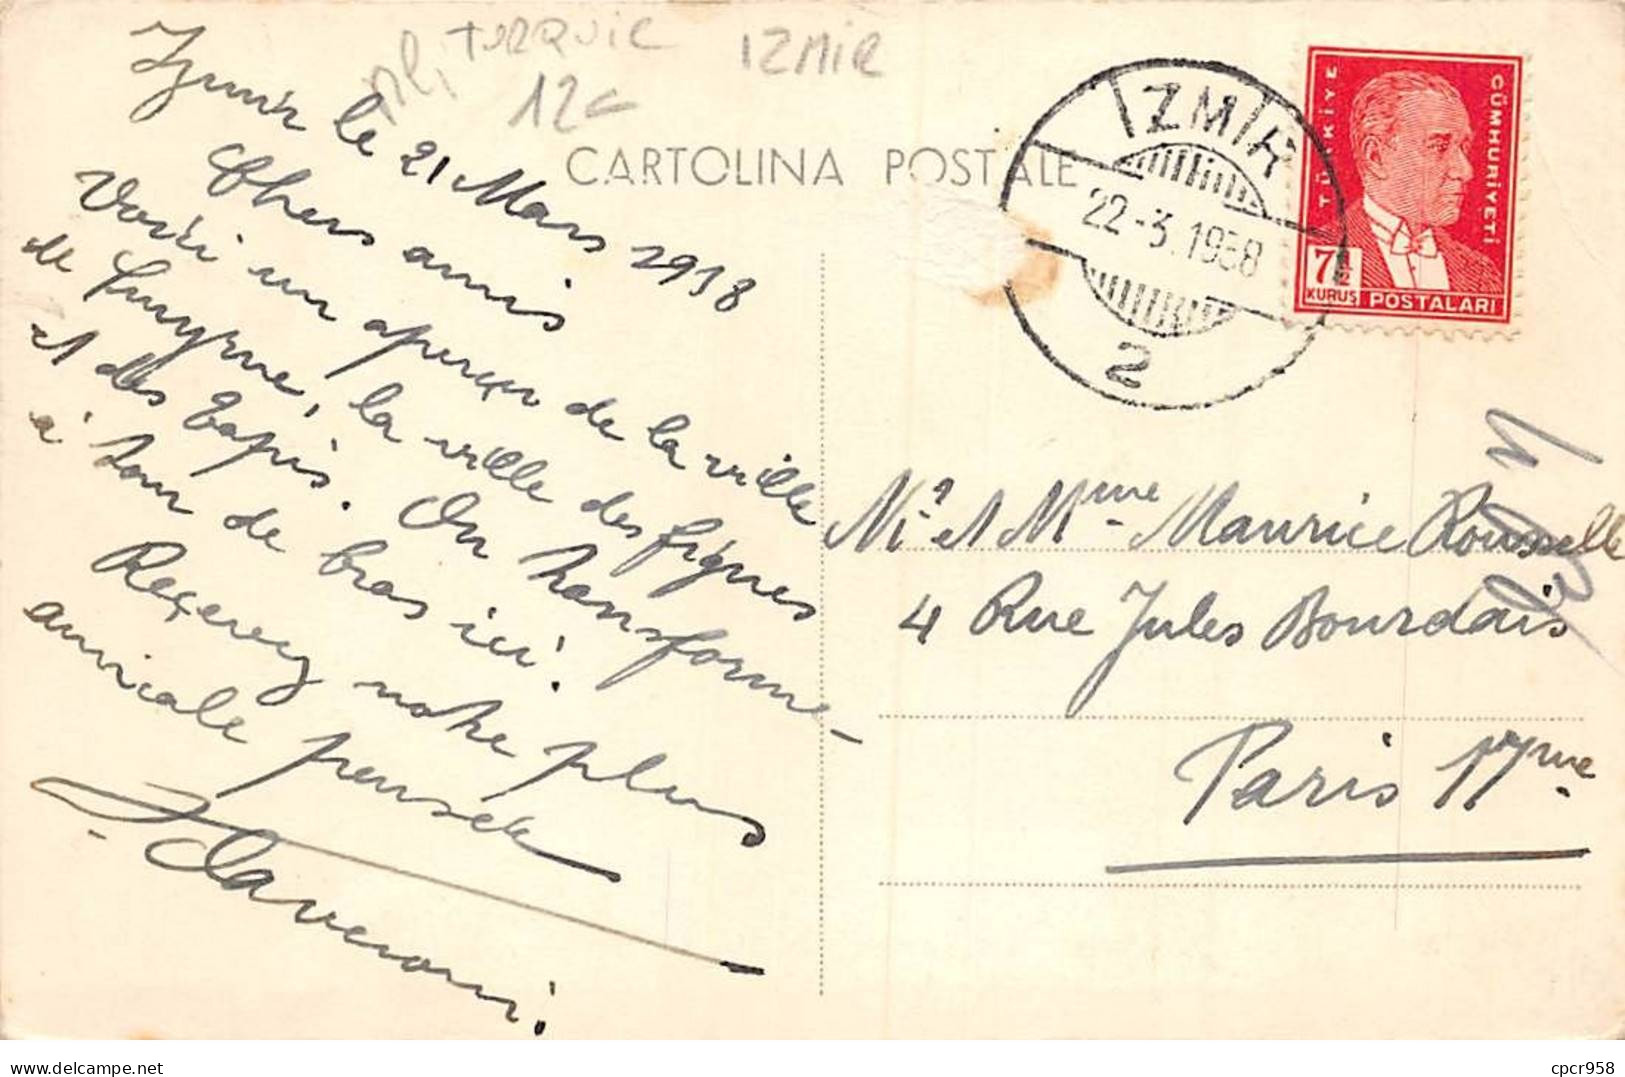 TURQUIE
IZMIR
12€
CARTOLINA POSTALE
IZMIR
22-3.1938
2
TÜRKİYE
CÜMHURİYETİ
7½
KURUŞ
POSTALARI
Izmir le 21 Mars 1938
Chers amis
Voici un aperçu de la ville
de Smyrne, la ville des figues
et des tapis. On transforme
à tour de bras ici!
Recevez notre plus
amicale pensée
Mr. et Mme Maurice Rousselle
4 Rue Jules Bourdais
Paris 17me
cpcr958